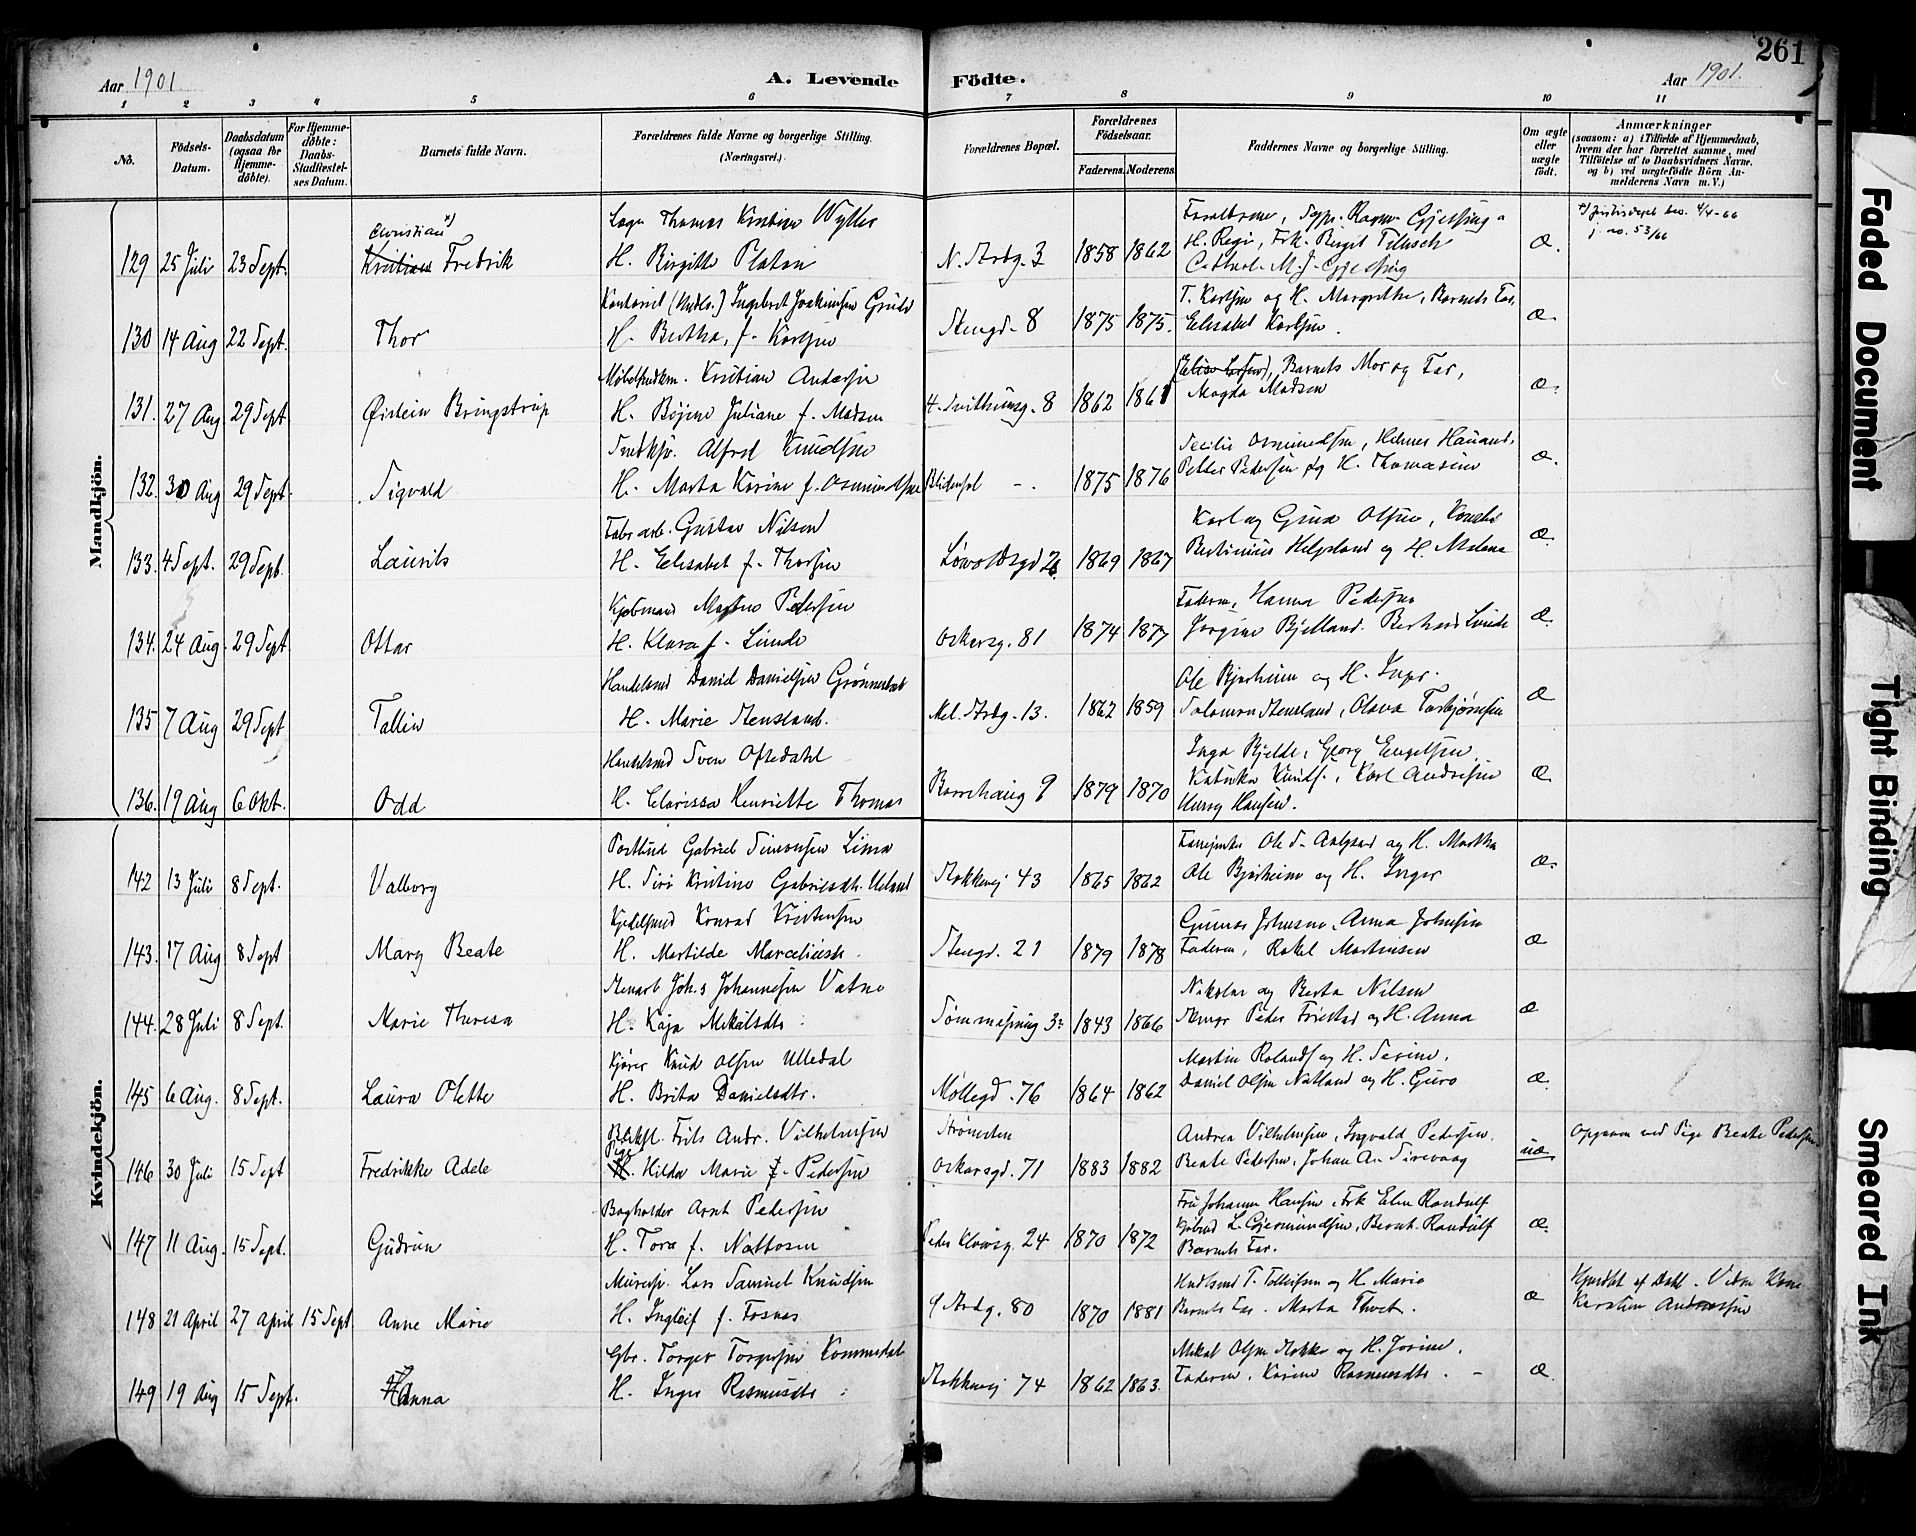 261
Aar 1901. A. Levende Födte. Aar 1901.
1 2 3 4 5 6 7 8 9 10 11
No.
Födsels-Datum.
Daabsdatum (ogsaa for Hjemme-döbte).
For Hjemme-döbte: Daabs-Stadfæstel-ses Datum.
Barnets fulde Navn.
Forældrenes fulde Navne og borgerlige Stilling. (Næringsvei.)
Forældrenes Bopæl.
Forældrenes Födselsaar.
Faderens. Moderens.
Faddernes Navne og borgerlige Stilling.
Om ægte eller uægte födt.
Anmærkninger
(saasom: a) i Tilfælde af Hjemmedaab, hvem der har forrettet samme, med Tilföielse af to Daabsvidners Navne. og b) ved uægtefödte Börn An-melderens Navn m. V.)
Mandkjön.
Christian x)
129 25 Juli 23 Sept. Kristian Fredrik
Thomas Kristian Wyller
H. Birgitte Platou
N. Strdg. 3 1858 1862
H. Regi, Frk. Birgit
æ.
j. no. 53/66
130 14 Aug 22 Sept. Thor
Ingebret Joakimsen Grude
H. Bertha, f. Karlsen
Stengd. 8 1875 1875.
T. Karlsen og H. Margrethe, Barnets Far,
Elisabet Karlsen.
æ.
131. 27 Aug 29 Sept Øistein Bringstrup
Kristian Andersen
H. Bøjine Juliane f. Madsen
4. Svithunsg. 8 1862 1861
Barnets Mor og Far,
Magda Madsen
æ.
132. 30 Aug 29 Sept. Sigvald
Alfred Knudsen
H. Marta Karine f. Osmundsen
Blidensol 1875 1876
Secilie Osmundsen,
Petter Pedersen og H. Thomasine
æ.
133. 4 Sept. 29 Sept. Laurits
Fabr. arb. Gustav Nilsen
H. Elisabet f. Thorsen
Løvoldsgd 26 1869 1867
Karl og Gina Olsen,
Bertinius Helgeland og H. Malene
æ.
134. 24 Aug. 29 Sept Ottar
Kjøbmand Pedersen
H. Klara f. Lunde
Oskarsg. 81 1874 1877
Faderen, Hanna Pedersen
Jorgine Bjelland. Berhard Lunde
æ.
135 7 Aug 29 Sept Tallein
Handelsmd Daniel Danielsen
H. Marie Stensland.
Mel. Strdg. 13. 1862 1859
Ole Bjerheim og H. Inger.
Salomon Stensland, Olava Torbjørnsen
æ
136. 19 Aug 6 Okt. Odd
Handelsmd Sven Oftedahl
H. Clarissa Henriette Thomas
Banehaug 9 1879 1870
Inga Bjelde, Georg Engelsen,
Karl Andresen
Harry Hansen.
æ
Kvindekjön.
142 13 Juli 8 Sept. Valborg
Postbud Gabriel Simonsen Lima
H. Siri Kristine Gabrielsdtr. Ueland
Stokkevej 43 1865 1862
Ole S. Aalgaard og H. Martha
Ole Bjerheim og H. Inger
æ.
143. 17 Aug 8 Sept Mary Beate
Konrad Kristensen
H. Martilde
Stengd. 21 1879 1878
Gunnar Johnsen, Anna Johnsen
Faderen, Rakel Martinsen
æ
144. 28 Juli 8 Sept. Marie Theresa
Stenarb Joh.s Johannesen Vatne
H. Kaja Mikalsdtr
1843 1866
Nikolai og Berta Nilsen
Peder Friestad og H. Anna
æ
145 6 Aug. 8 Sept. Laura Olette
Kjører Knud Olsen Ulledal
H. Brita Danielsdtr.
Møllegd. 76 1864 1862
Martin Roland og H. Serine.
Daniel Olsen Natland og H. Guro
æ
146 30 Juli 15 Sept Fredrikke Adele
Frits Andr. Vilhelmsen
Pige Hilda Marie f. Pedersen
Strømsten
Oskarsgd. 71 1883 1882
Andrea Vilhelmsen, Ingvald Pedersen,
Beate Pedersen, Johan A. Sirevaag
uæ.
Opgaven ved Pige Beate Pedersen
147 11 Aug. 15 Sept. Gudrun
Bogholder Arnt Pedersen
H. Tora f. Nattosen
Peder Klowsg. 24 1870 1872
Fru Johanne Hansen, Frk Elen Randulf
L. Gjermundsen, Bernt. Randulf
Barnets Far.
æ.
148 21 April 27 April 15 Sept. Anne Marie
Murersv. Lars Samuel Knudsen
H. Ingleif f. Fosnes
Ø Strdg. 80 1870 1881
T. Tollefsen og H. Marie
Barnets Far. Marta Thvet.
æ
Hjemdbt af Dahl. Vidne Kone
Karsten Andreassen
149 19 Aug 15 Sept. Hanna
Gbr. Torger Torgersen Kommedal
H. Inger Rasmusdtr
Stokkevej 74 1862 1863.
Mikal Olsen Stokke og H. Jorine.
Faderen, Karine Rasmusdtr.
æ.
Faded Document
Tight Binding
Smeared Ink